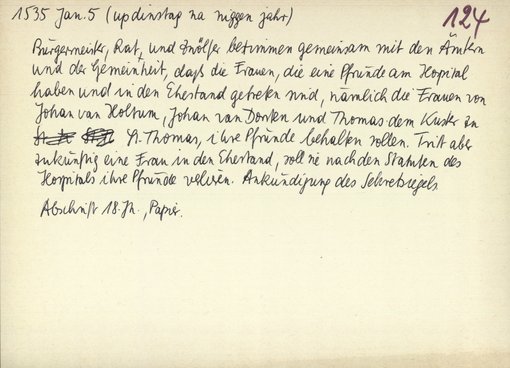 1535 Jan. 5 (up dinstag na niggen jahr)
124
Bürgermeister, Rat, und Zwölfer bestimmen gemeinsam mit den Ämtern
und der Gemeinheit, dass die Frauen, die eine Pfründe am Hospital
haben und in den Ehestand getreten sind, nämlich die Frauen von
Johan van Holtum, Johan van Dorsten und Thomas dem Kuster zu
St. Thomas, ihre Pfründe behalten sollen. Tritt aber
zukünftig eine Frau in den Ehestand, soll sie nach den Statuten des
Hospitals ihre Pfründe verlieren. Ankündigung des Sekretsiegels
Abschrift 18. Jh., Papier.